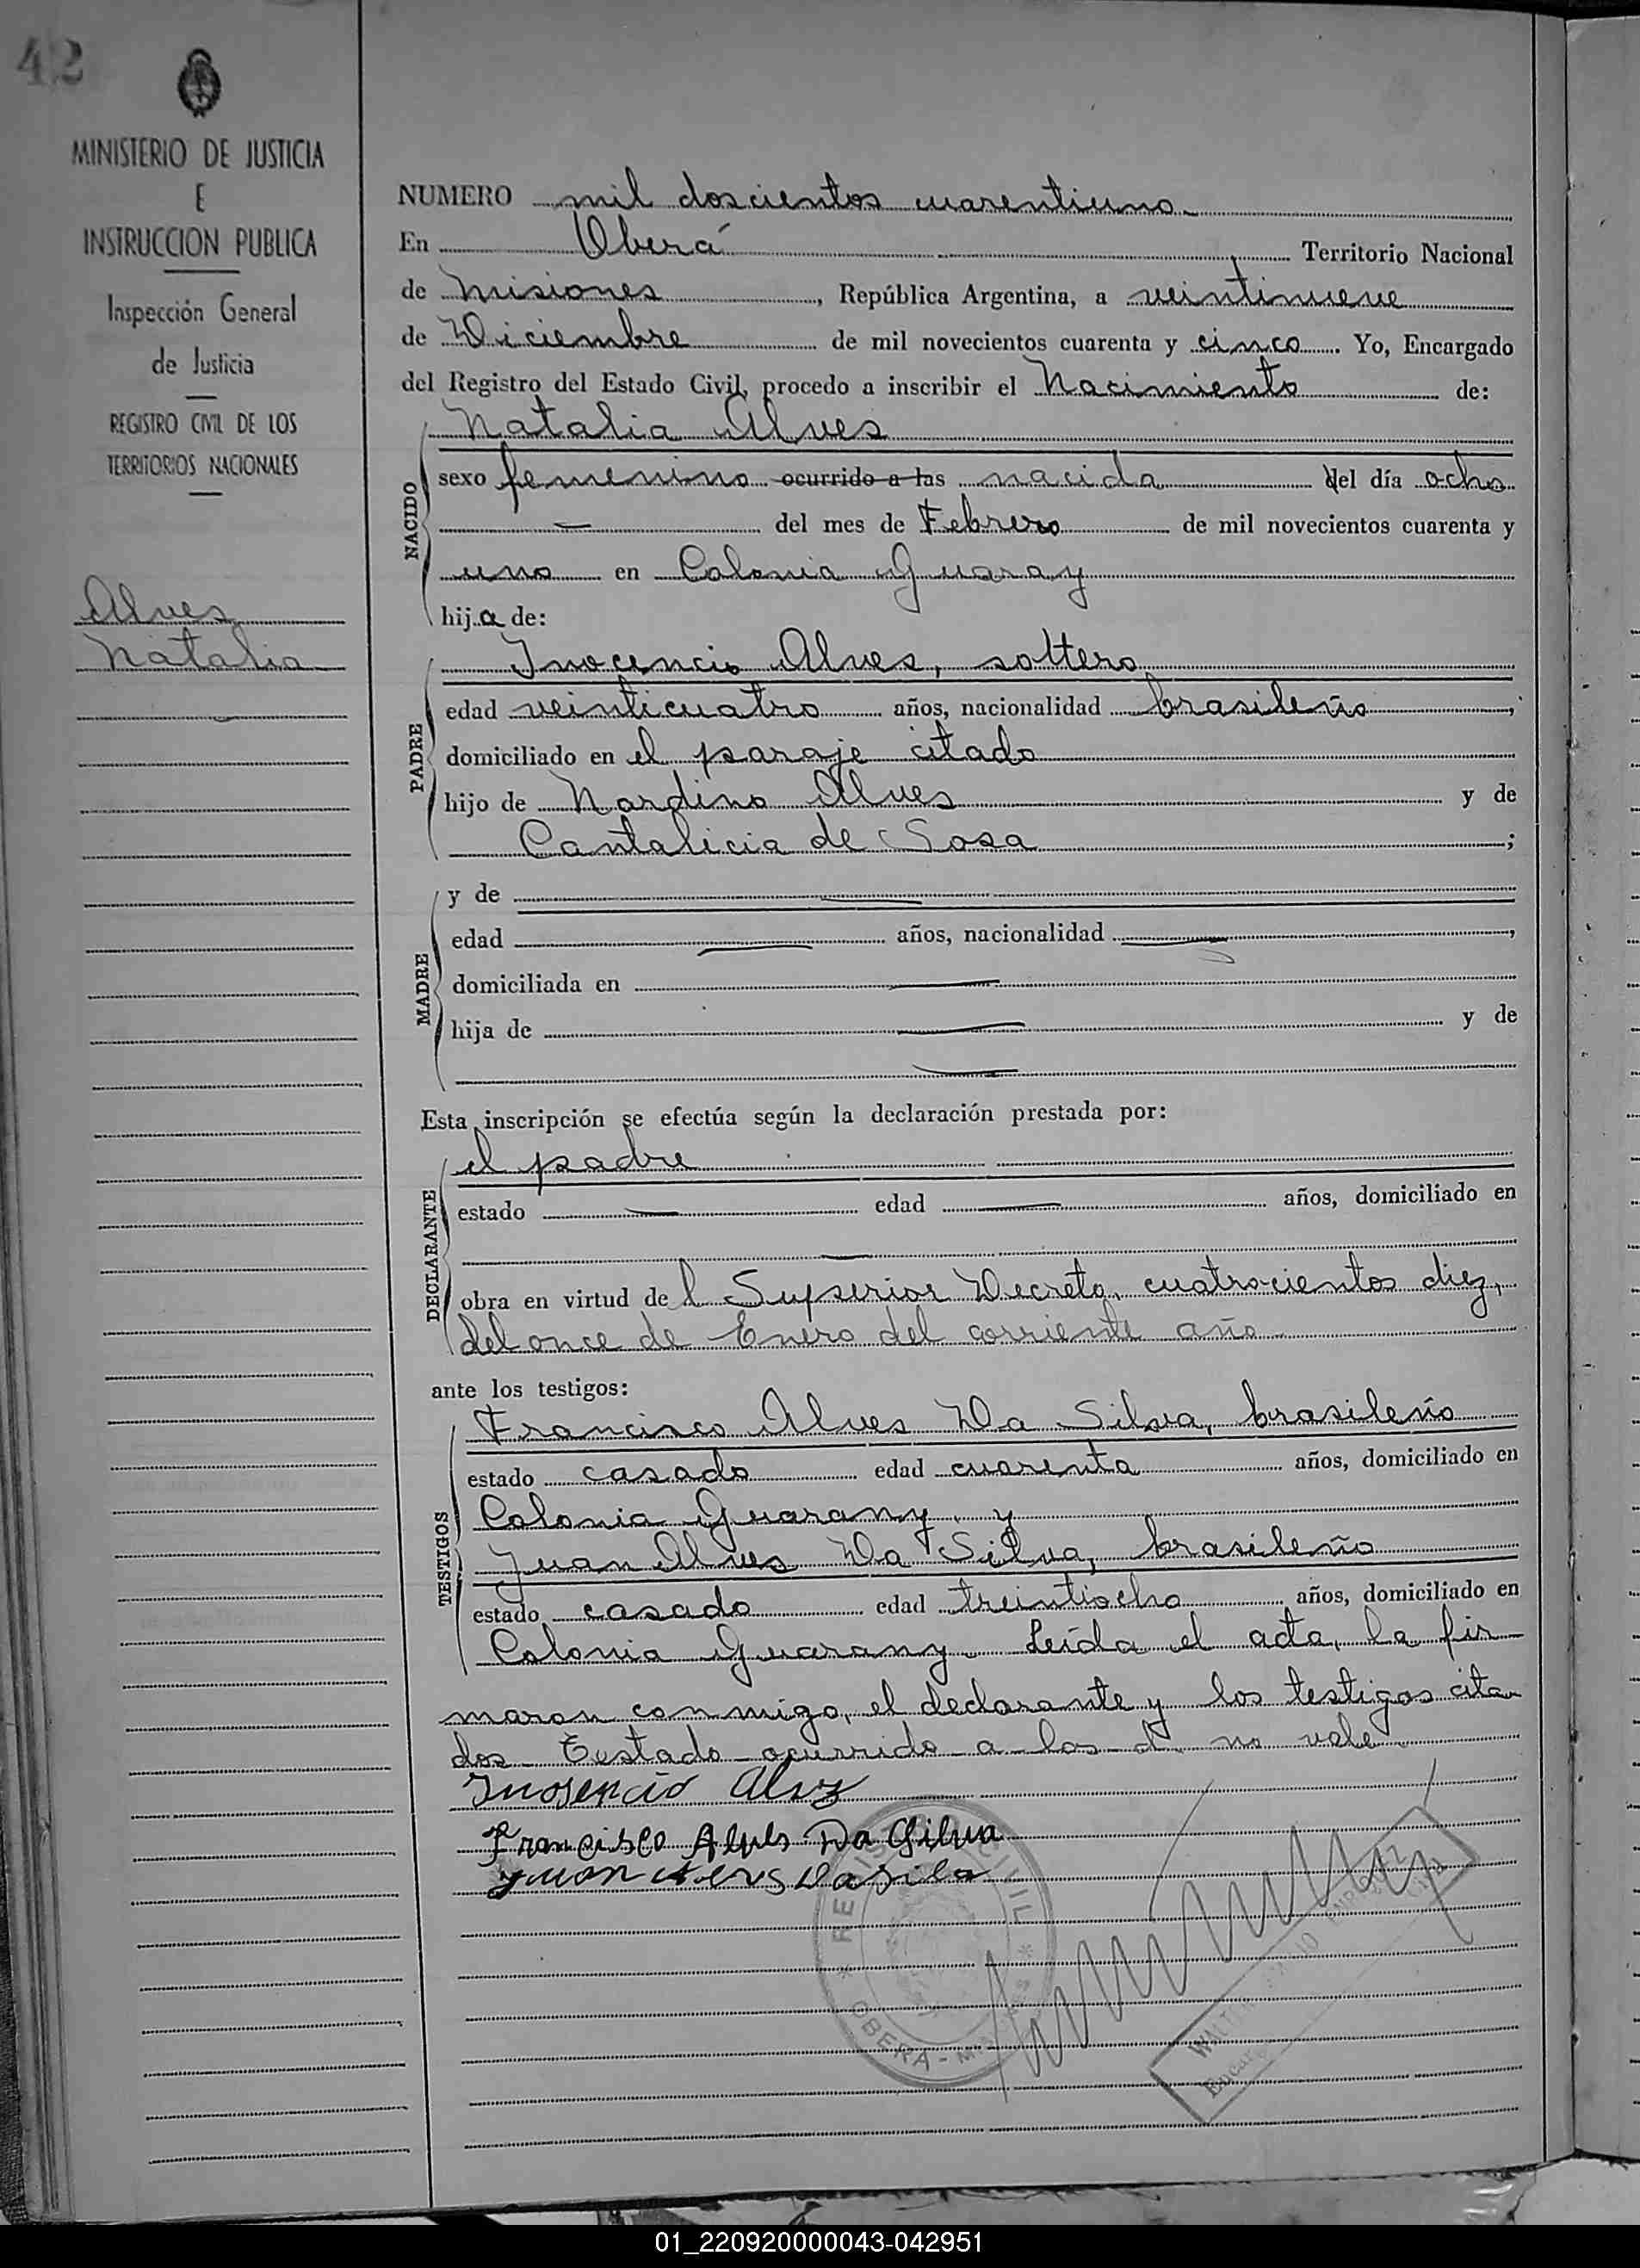 42
MINISTERIO DE JUSTICIA
E
INSTRUCCION PUBLICA
Inspección General
de Justicia
REGISTRO CIVIL DE LOS
TERRITORIOS NACIONALES
Alves
Natalia
NUMERO mil doscientos cuarentiuno
En Oberá Territorio Nacional
de Misiones, República Argentina, a veintinueve
de Diciembre de mil novecientos cuarenta y cinco. Yo, Encargado
del Registro del Estado Civil, procedo a inscribir el Nacimiento de:
NACIDO
Natalia Alves
sexo femenino ocurrido a las nacida del día ocho
— del mes de Febrero de mil novecientos cuarenta y
uno en Colonia Guaray
hija de:
PADRE
Inocencio Alves, soltero
edad veinticuatro años, nacionalidad brasileño,
domiciliado en el paraje citado
hijo de Nardino Alves y de
Cantalicia de Sosa;
MADRE
y de —
edad — años, nacionalidad —,
domiciliada en —
hija de — y de
—
Esta inscripción se efectúa según la declaración prestada por:
DECLARANTE
el padre
estado — edad — años, domiciliado en
—
obra en virtud del Superior Decreto, cuatrocientos diez,
del once de Enero del corriente año
ante los testigos:
TESTIGOS
Francisco Alves Da Silva, brasileño
estado casado edad cuarenta años, domiciliado en
Colonia Guarany y
Juan Alves Da Silva, brasileño
estado casado edad treintiocho años, domiciliado en
Colonia Guarany. Leída el acta, la fir
maron conmigo, el declarante y los testigos cita
dos. Testado ocurrido a las d no vale
Inosencio Alvz
Francisco Alves Da Silva
Juan Alvs Da sila
REGISTRO CIVIL
OBERA - MISIONES
01_220920000043-042951